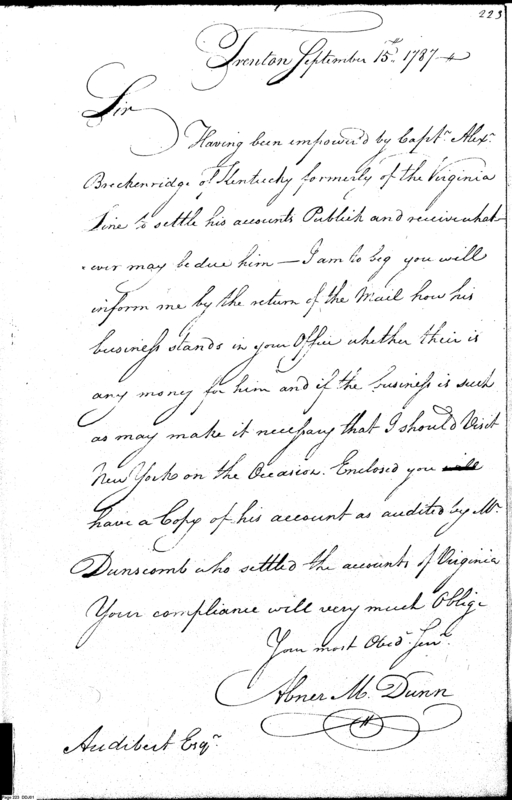 223
Trenton September 15th. 1787
Sir
Having been empower'd by Captn. Alexr.
Breckenridge of Kentucky formerly of the Virginia
Line to settle his accounts Publick and receive what-
ever may be due him — I am to beg you will
inform me by the return of the Mail how his
business stands in your Office whether their is
any money for him and if the business is such
as may make it necessary that I should Visit
New York on the Occasion. Enclosed you will
have a Copy of his account as audited by Mr.
Dunscomb who settled the accounts of Virginia
Your compliance will very much Oblige
Your most Obed. Serv.
Abner M. Dunn
Audibert Esqr.
Page 223